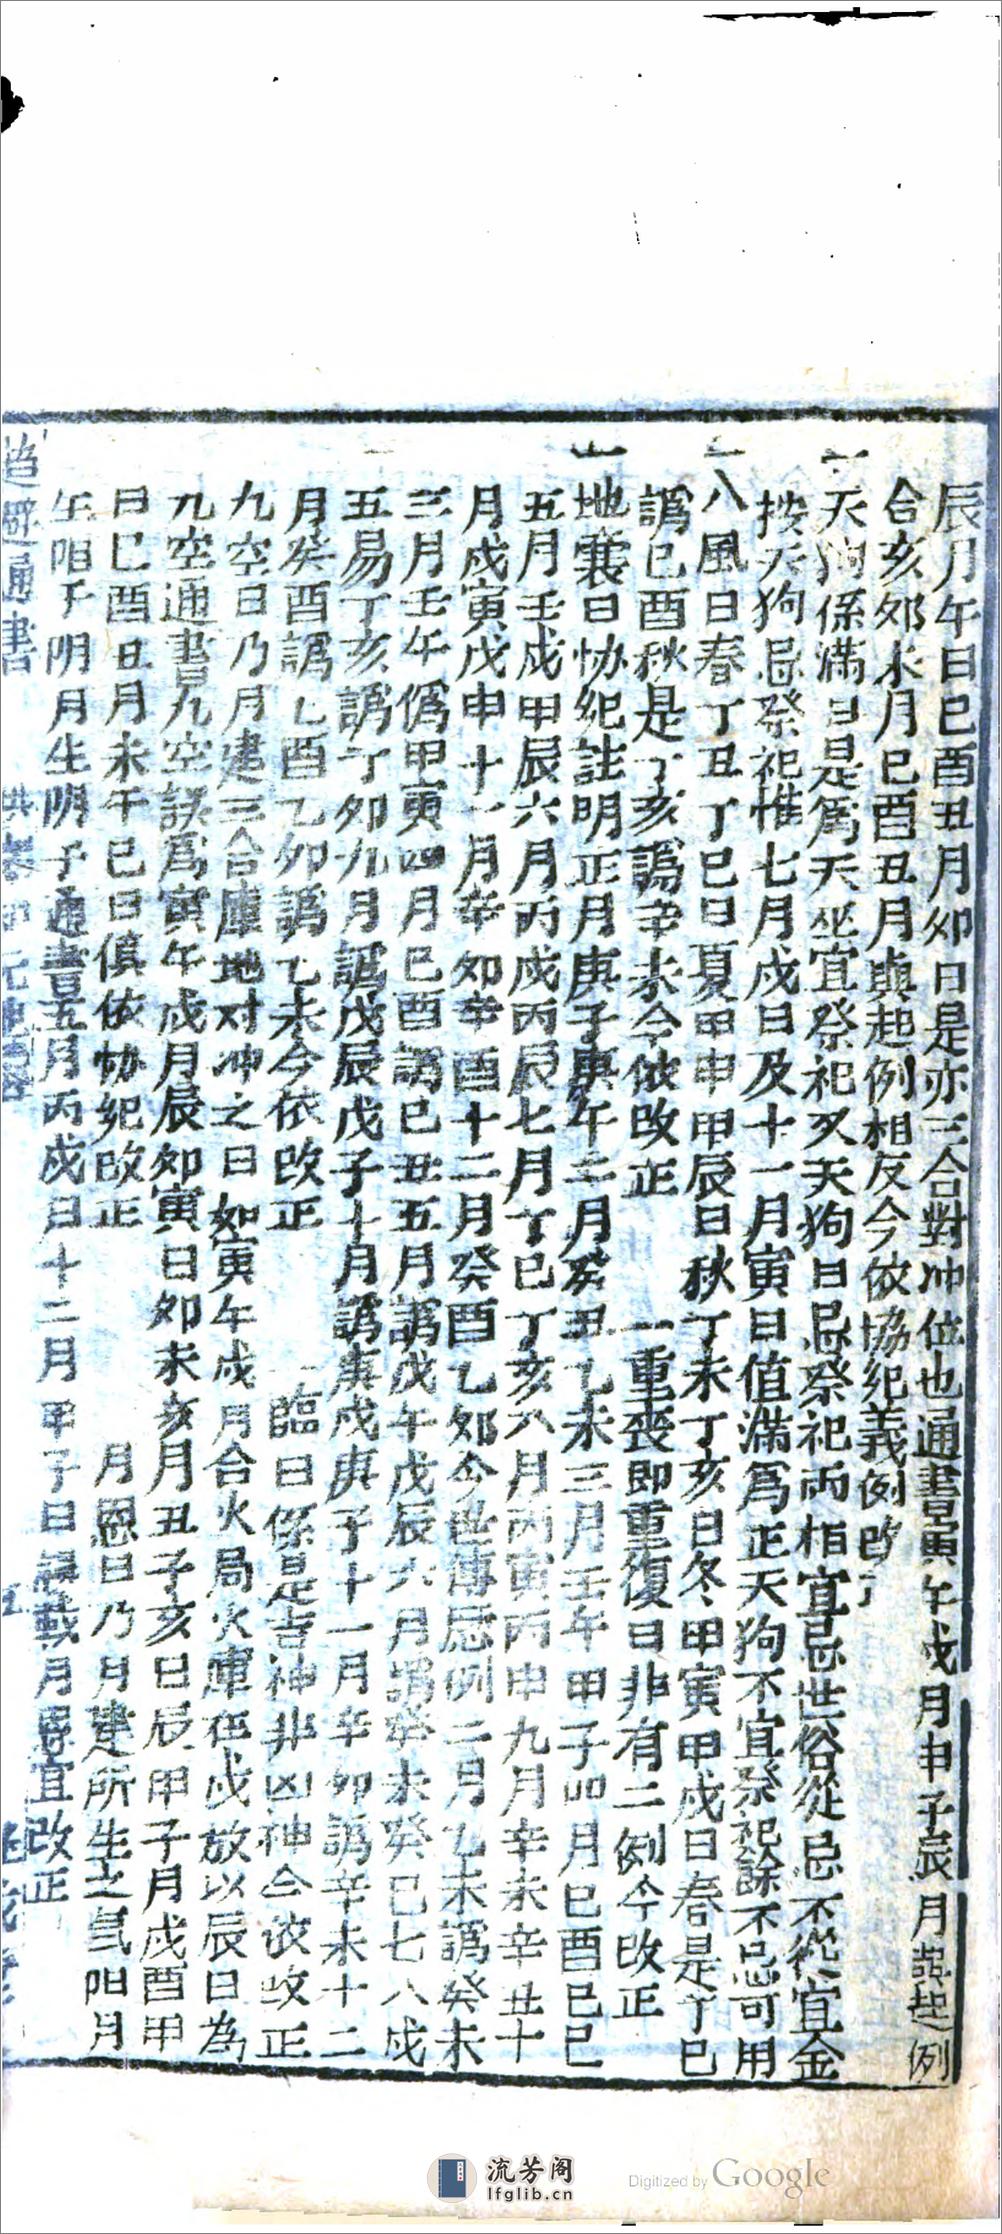 辰月午日巳酉丑月卯日是亦三合對冲位也通書寅午戌月申子辰月起例
合亥卯未月巳酉丑月與起例相反今依協紀義例改
一天狗係滿日是爲天丠宜祭祀又天狗日忌祭祀而相宜忌世俗從忌不從宜金
按天狗忌祭祀惟七月戌日及十一月寅日值滿爲正天狗不宜祭祀餘不忌可用
一八風日春丁丑丁巳日夏甲申甲辰日秋丁未丁亥日冬甲寅甲戌日春是丁巳
譌巳酉秋是丁亥譌辛未今依改正 一重喪即重復日非有二例今改正
一地囊日协纪註明正月庚子庚午二月癸丑乙未三月壬午甲子四月己酉己巳
五月壬戌甲辰六月丙戌丙辰七月丁巳丁亥八月丙寅丙申九月辛未辛丑十
月戊寅戊申十一月辛卯辛酉十二月癸酉乙卯今世傳忌例二月乙未譌癸未
三月壬午偽甲寅四月己酉譌己丑五月譌戊午戊辰六月譌癸未癸巳七八戌
五易丁亥譌丁卯九月譌戊辰戊子十月譌庚戌庚子十一月辛卯譌辛未十二
月癸酉譌乙酉乙卯譌乙未今依改正 一臨日係是吉神非凶神今依改正
九空日乃月建三合庫地对冲之日如寅午戌月合火局火庫在戌放以辰日為
九空通書九空誤爲寅午戌月辰卯寅日卯未亥月丑子亥日辰甲子月戌酉甲
日巳酉丑月未午巳日俱依协纪改正 月恩日乃月建所生之日阳月
生阳干阴月生阴子通書五月丙戌日十二月甲子日誤載月恩宜改正
趋避通書